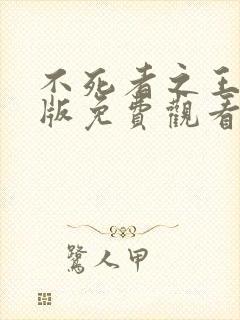 不死者之王
版免費觀看
鷺人甲